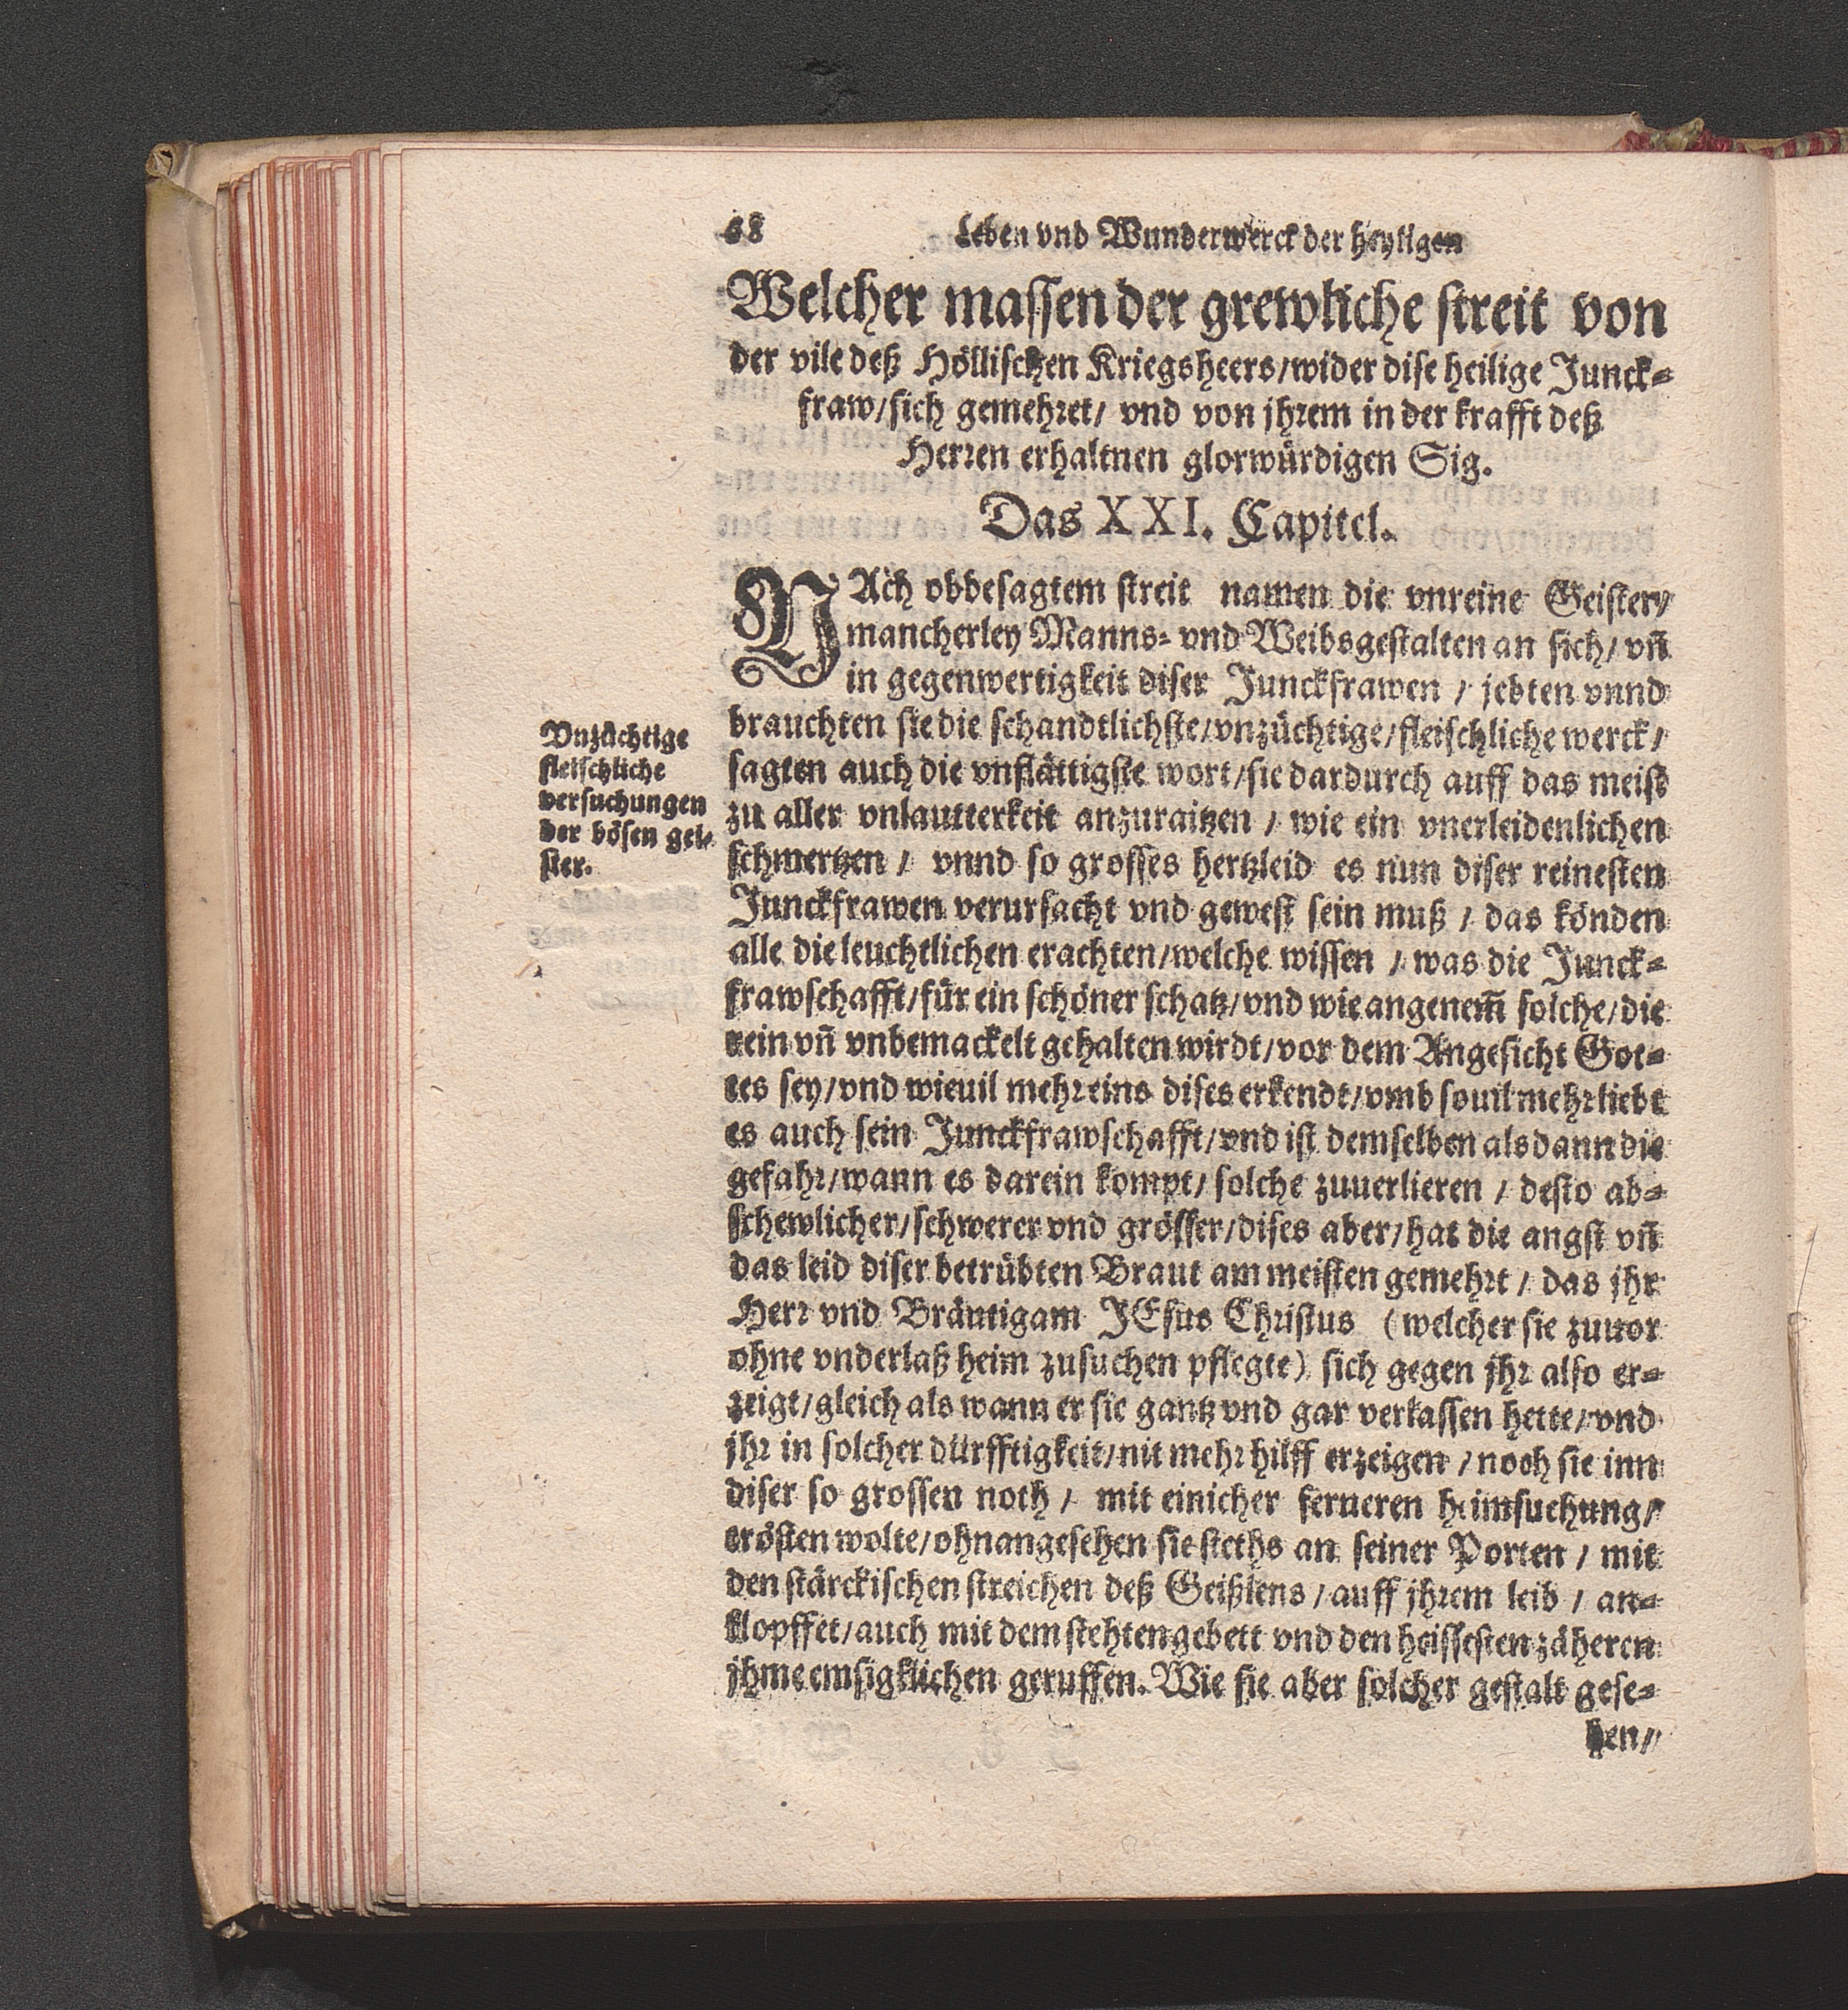 68 Leben vnd Wunderwerck der heyligen
Welcher massen der grewliche streit von
der vile deß Höllischen Kriegsheers/wider dise heilige Junck-
fraw/sich gemehret/ vnd von jhrem in der krafft deß
Herren erhaltnen glorwürdigen Sig.
Das XXI. Capitel.
NAch obbesagtem streit namen die vnreine Geister/
mancherley Manns- vnd Weibsgestalten an sich/ vñ
in gegenwertigkeit diser Junckfrawen / jebten vnnd
brauchten sie die schandtlichste/vnzüchtige/fleischliche werck/
sagten auch die vnflättigste wort/sie dardurch auff das meist
zu aller vnlautterkeit anzuraitzen / wie ein vnerleidenlichen
schmertzen / vnnd so grosses hertzleid es nun diser reinesten
Junckfrawen verursacht vnd gewest sein muß / das könden
alle die leuchtlichen erachten/welche wissen / was die Junck-
frawschafft/für ein schöner schatz/vnd wie angenem̃ solche/die
rein vñ vnbemackelt gehalten wirdt/vor dem Angesicht Got-
tes sey/vnd wieuil mehr eins dises erkendt/vmb souil mehr liebt
es auch sein Junckfrawschafft/vnd ist demselben alsdann die
gefahr/wann es darein kompt/ solche zuuerlieren / desto ab-
schewlicher/schwerer vnd grösser/dises aber/hat die angst vñ
das leid diser betrübten Braut am meisten gemehrt / das jhr
Herr vnd Bräutigam JEsus Christus (welcher sie zuuor
ohne vnderlaß heim zusuchen pflegte) sich gegen jhr also er-
zeigt/gleich als wann er sie gantz vnd gar verlassen hette/vnd
jhr in solcher dürfftigkeit/nit mehr hilff erzeigen / noch sie inn
diser so grossen noth / mit einicher ferneren heimsuchung/
trösten wolte/ohnangesehen sie steths an seiner Porten / mit
den stärckischen streichen deß Geißlens / auff jhrem leib / an-
klopffet/auch mit dem stehten gebett vnd den heissesten zäheren
jhme emsigklichen geruffen. Wie sie aber solcher gestalt gese-
hen/
Vnzüchtige
fleischliche
versuchungen
der bösen gei-
ster.